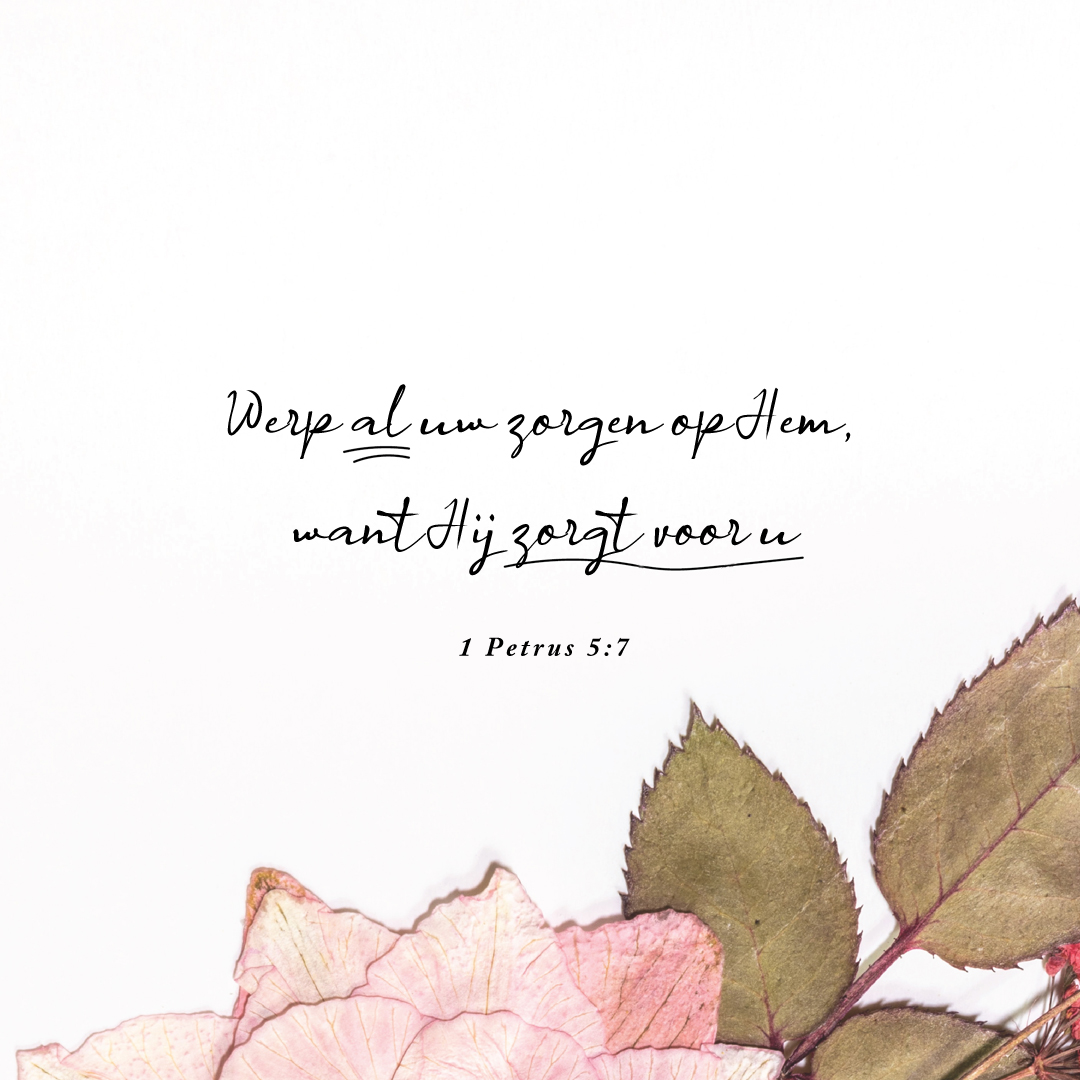 Werp al uw zorgen op Hem,
want Hij zorgt voor u
1 Petrus 5:7